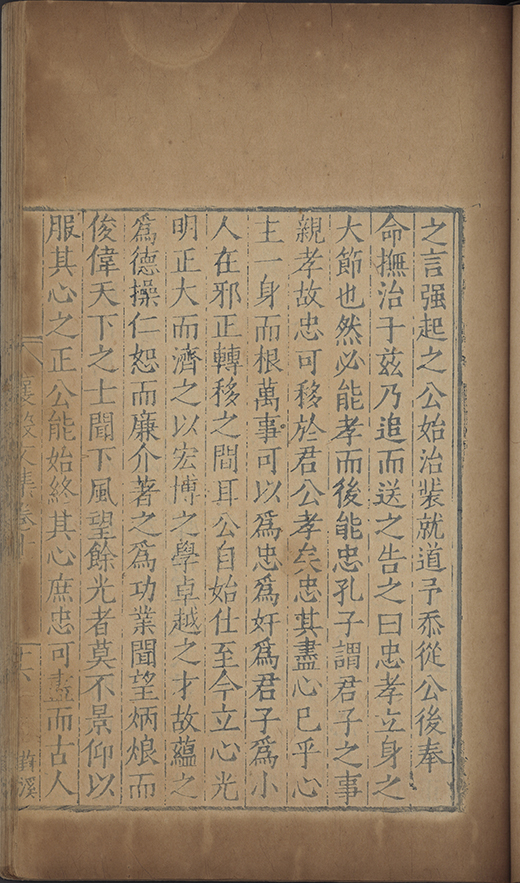 之言强起之公始治裝就道予忝從公後奉
命撫治于兹乃追而送之告之曰忠孝立身之
大節也然必能孝而後能忠孔子謂君子之事
親孝故忠可移於君公孝矣忠其盡心已乎心
主一身而根萬事可以爲忠爲奸爲君子爲小
人在邪正轉移之間耳公自始仕至今立心光
明正大而濟之以宏博之學卓越之才故蘊之
爲德操仁恕而廉介著之爲功業聞望炳烺而
俊偉天下之士聞下風望餘光者莫不景仰以
服其心之正公能始終其心庶忠可盡而古人
文集卷十